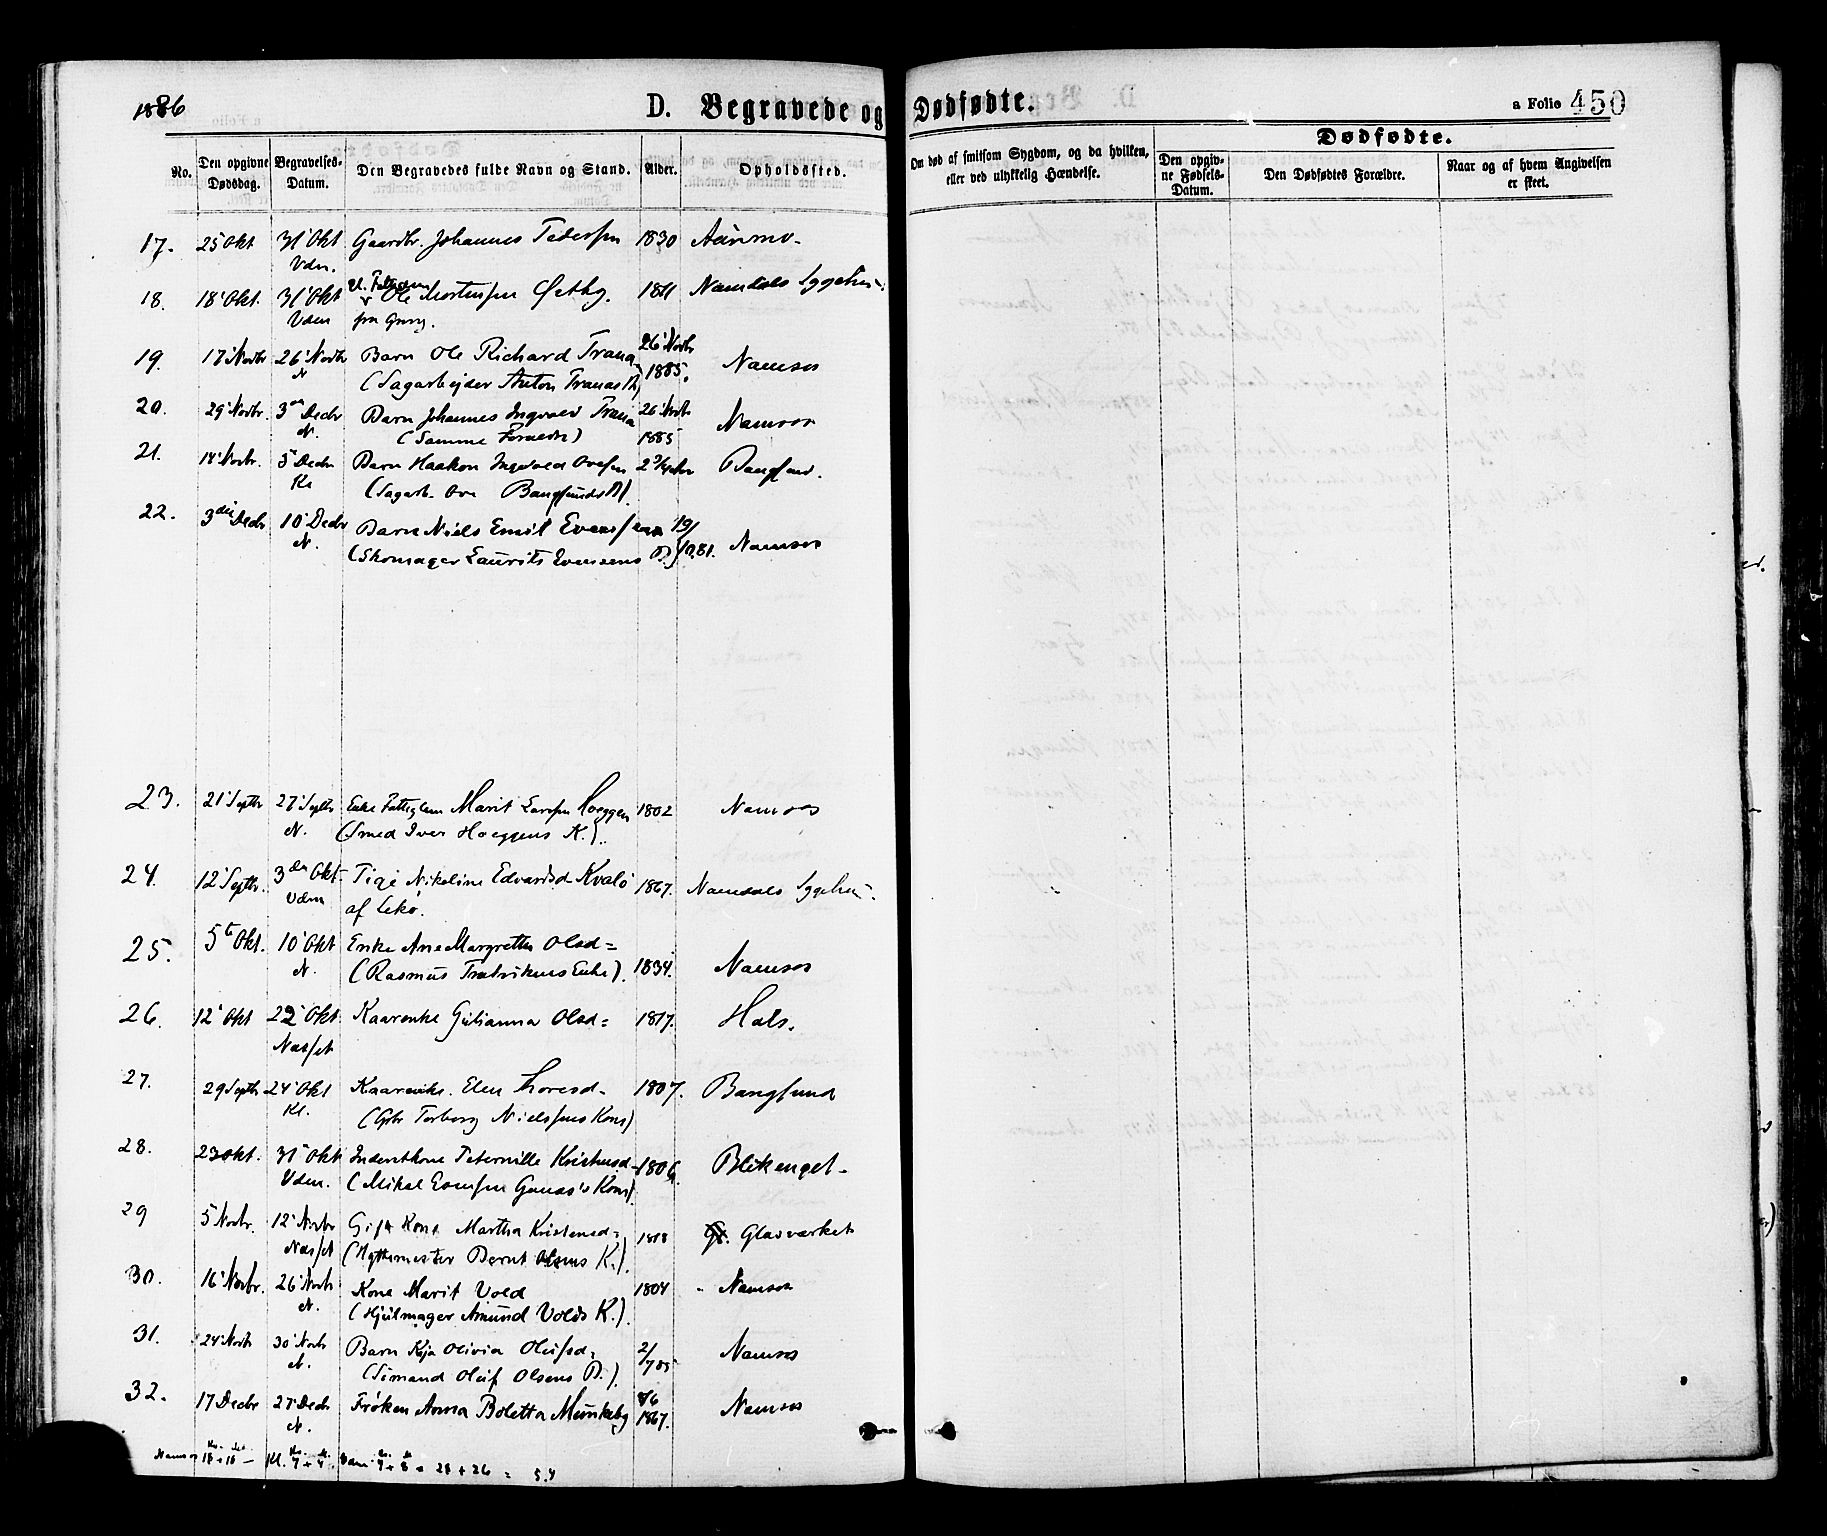 1886
D. Begravede og Dødfødte.
a Folio 450
No.
Den opgivne Dødsdag.
Begravelses-Datum.
Den Begravedes fulde Navn og Stand.
Alder.
Opholdssted.
Om død af smitsom Sygdom, og da hvilken, eller ved ulykkelig Hændelse.
Dødfødte.
Den opgivne Fødsels-Datum.
Den Dødfødtes Forældre.
Naar og af hvem Angivelsen er skeet.
17. 25' Okt 31' Okt Gaardbr. Johannes Pedersen 1830
Vdn.
18. 18' Okt. 31' Okt Ole Mortensen 1811 Namdals Sygehus
Vdn fra
19. 17' Novbr 26' Novbr Barn Ole Richard Trana 26' Novbr 1885. Namsos
N (Sagarbejder Anton Tranas B)
20. 29' Novbr. 3die Decbr Barn Johannes Ingvald Trana 26' Novbr 1885 Namsos
N. (Samme Forældre)
21. 18' Novbr. 5' Decbr Barn Haakon Ingvald Ovesen 2 3/4 Bangsund.
Kl (Sagarb. Ove Bangsunds B).
22. 3die Decbr 10' Decbr Barn Niels Emil Evensen 19/10.81. Namsos
N. (Skomager Laurits Evensens B.)
23. 21' Septbr 27' Septbr Enke Fattiglem Marit Larsen Hoeggen 1802 Namsos
N. (Smed Iver Hoeggens K.).
24. 12' Septbr. 3die Okt. Pige Nikoline Edvardsd. Kvalø 1867. Namdals Sygehus.
Vdn af Lekø.
25. 5t Okt. 10' Okt Enke Ane Margrethe Olsd=
N. (Rasmus Enke). 1834. Namsos
26. 12' Okt 22' Okt. Kaarenke Gulianna Olsd= 1817. Hals.
Næsset
27. 29 Septbr 24' Okt Kaarenke. Elen Thoresd. 1807. Bangsund
Kl. (Gbr Torberg Nielsens Kone)
28. 23 Okt. 31' Okt Inderstkone Peternille Kristensd. 1806. Blikenget-
Vdn. (Mikal Evensen Kone)
29 5' Novbr. 12' Novbr Gift Kone Martha Kristensd= 1818 Glasværket
Næsset (Hyttemester Bernt Olsens K.).
30. 16' Novbr. 26' Novbr Kone Marit Vold 1804 Namsos
N. (Hjulmager Amund Volds K.).
31. 24' Novbr 30' Novbr Barn Kaja Olivia Olufsd= 2/7 85 Namsos
N. (Sømand Oluf Olsens B.).
32. 17 Decbr 27' Decbr Frøken Anna Boletta Munkeby 1867. Namsos
N.
Namsos 18 + 16 — Kl. 4 + 4. 28 + 26 = 54